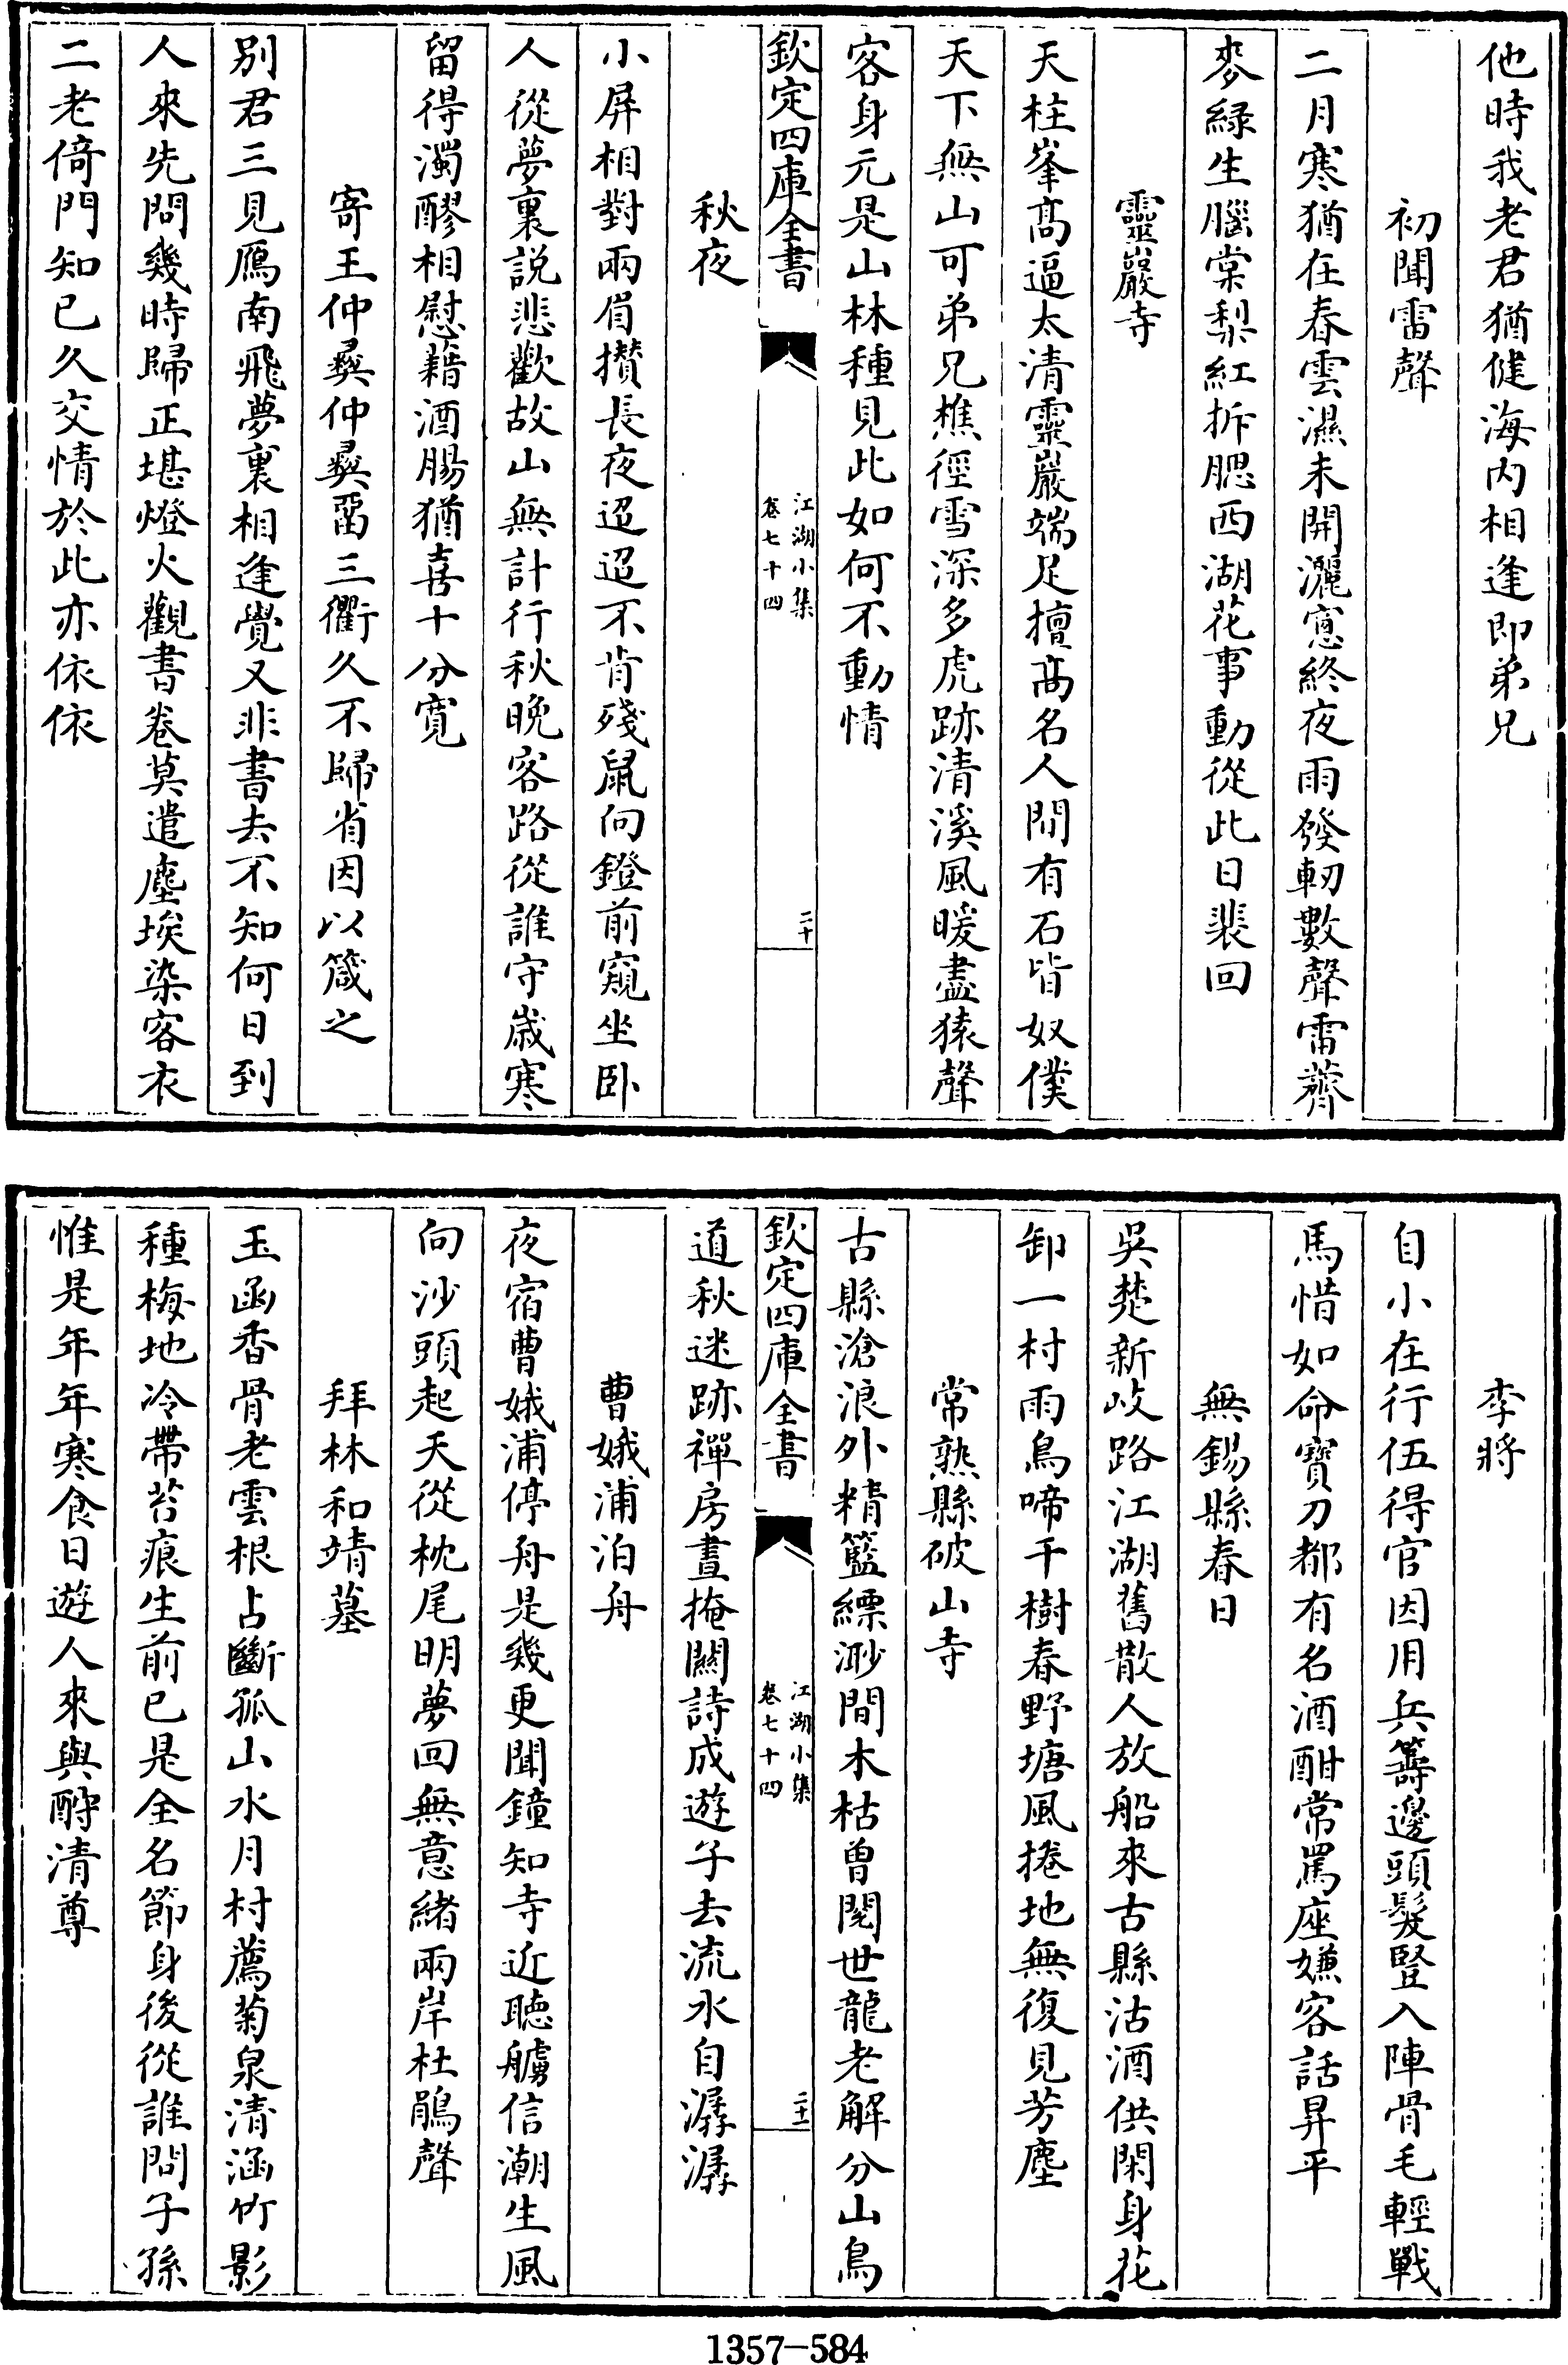 他時我老君猶健海内相逢即弟兄
初聞雷聲
二月寒猶在春雲濕未開灑窻終夜雨發軔數聲雷薺
麥緑生腦棠梨紅拆腮西湖花事動從此日裴回
靈巖寺
天柱峯髙逼太清靈巖端足擅髙名人間有石皆奴僕
天下無山可弟兄樵徑雪深多虎跡清溪風暖盡猿聲
客身元是山林種見此如何不動情
欽定四庫全書
江湖小集
卷七十四
二十
秋夜
小屏相對兩眉攢長夜迢迢不肯殘鼠向鐙前窺坐卧
人從夢裏説悲歡故山無計行秋晩客路從誰守嵗寒
留得濁醪相慰藉酒腸猶喜十分寛
寄王仲彞仲彞畱三衢久不歸省因以箴之
别君三見鴈南飛夢裏相逢覺又非書去不知何日到
人來先問幾時歸正堪燈火觀書卷莫遣塵埃染客衣
二老倚門知已久交情於此亦依依
李將
自小在行伍得官因用兵籌邊頭髮豎入陣骨毛輕戰
馬惜如命寶刀都有名酒酣常罵座嫌客話昇平
無錫縣春日
吳楚新岐路江湖舊散人放船來古縣沽酒供閑身花
卸一村雨鳥啼千樹春野塘風捲地無復見芳塵
常熟縣破山寺
古縣滄浪外精籃縹渺間木枯曾閱世龍老解分山鳥
欽定四庫全書
江湖小集
卷七十四
二十一
道秋迷跡禪房晝掩關詩成遊子去流水自潺潺
曹娥浦泊舟
夜宿曹娥浦停舟是幾更聞鐘知寺近聴艣信潮生風
向沙頭起天從枕尾明夢回無意緒兩岸杜鵑聲
拜林和靖墓
玉函香骨老雲根占斷孤山水月村薦菊泉清涵竹影
種梅地冷帶苔痕生前已是全名節身後從誰問子孫
惟是年年寒食日遊人來與酹清尊
1357-584